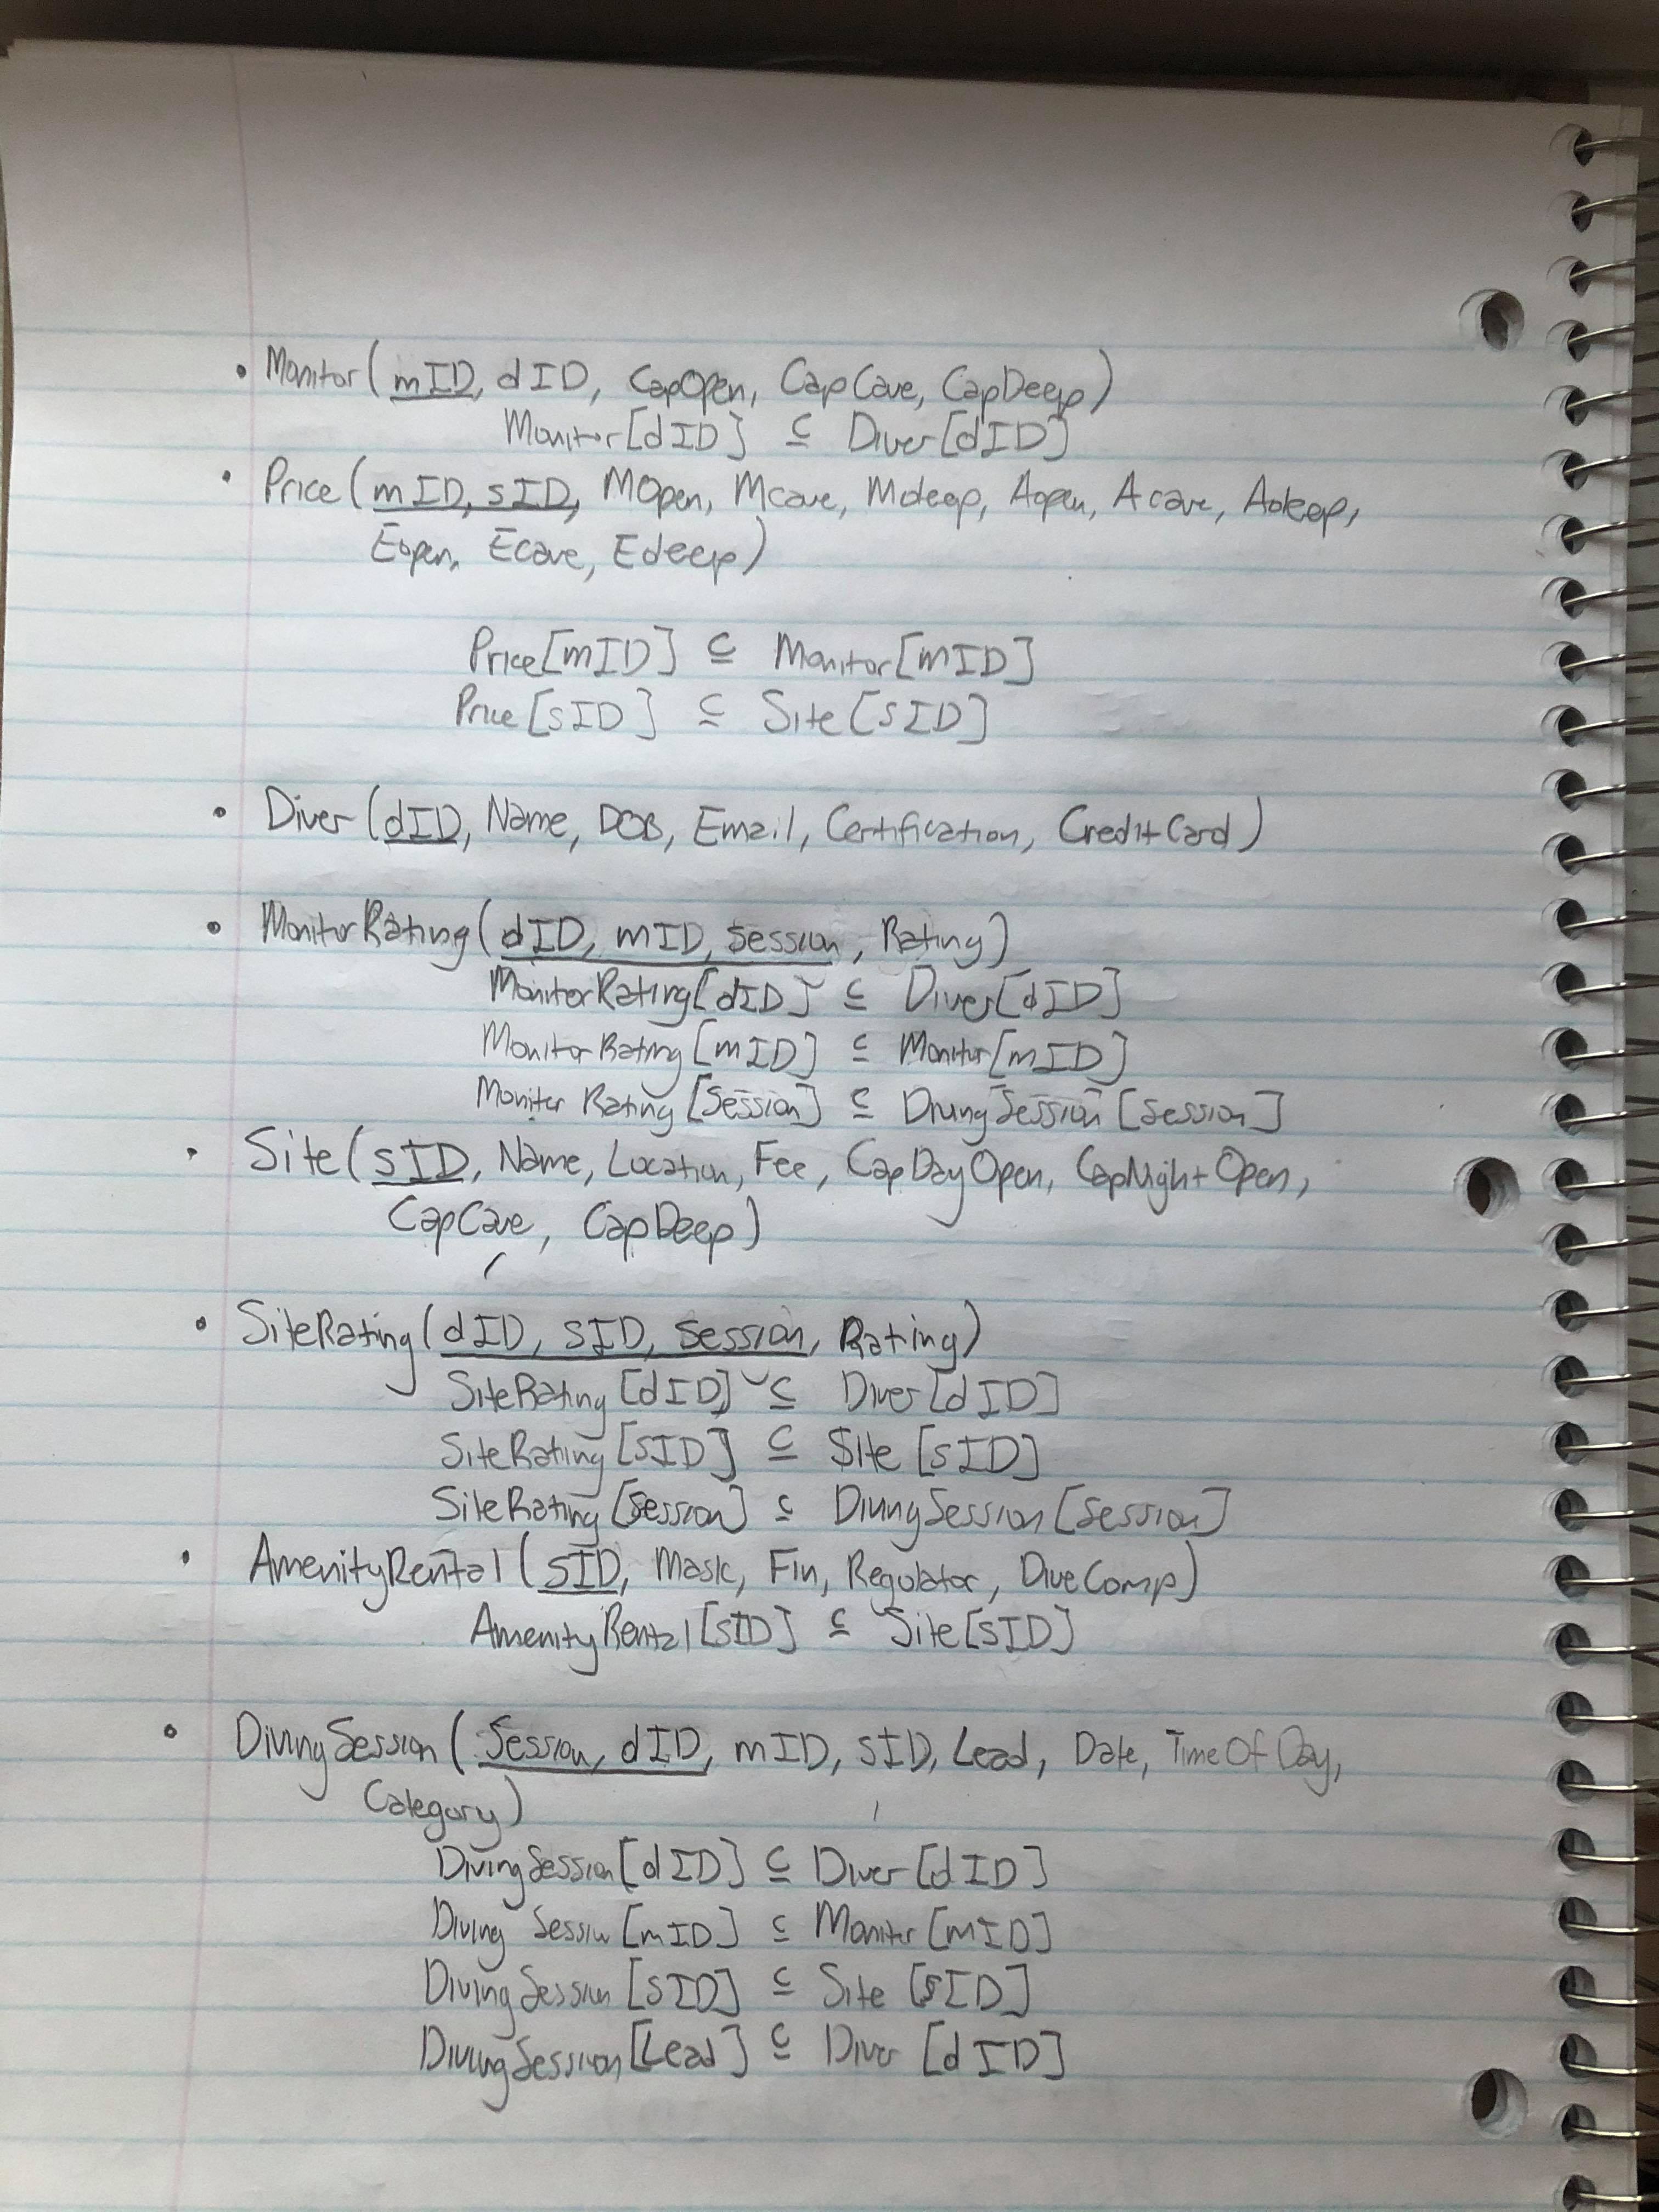 • Monitor(mID, dID, CapOpen, CapCave, CapDeep)
Monitor[dID] ⊆ Diver[dID]
• Price(mID, sID, MOpen, Mcave, Mdeep, Aopen, Acave, Adeep,
Eopen, Ecave, Edeep)
Price[mID] ⊆ Monitor[mID]
Price[sID] ⊆ Site[sID]
• Diver(dID, Name, DOB, Email, Certification, CreditCard)
• MonitorRating(dID, mID, Session, Rating)
MonitorRating[dID] ⊆ Diver[dID]
MonitorRating[mID] ⊆ Monitor[mID]
Monitor Rating[Session] ⊆ DivingSession[Session]
• Site(sID, Name, Location, Fee, CapDayOpen, CapNightOpen,
CapCave, CapDeep)
• SiteRating(dID, sID, Session, Rating)
SiteRating[dID] ⊆ Diver[dID]
SiteRating[sID] ⊆ Site[sID]
SiteRating[Session] ⊆ DivingSession[Session]
• AmenityRental(sID, Mask, Fin, Regulator, DiveComp)
AmenityRental[sID] ⊆ Site[sID]
• DivingSession(Session, dID, mID, sID, Lead, Date, TimeOfDay,
Category)
DivingSession[dID] ⊆ Diver[dID]
Diving Session[mID] ⊆ Monitor[mID]
DivingSession[sID] ⊆ Site[sID]
DivingSession[Lead] ⊆ Diver[dID]